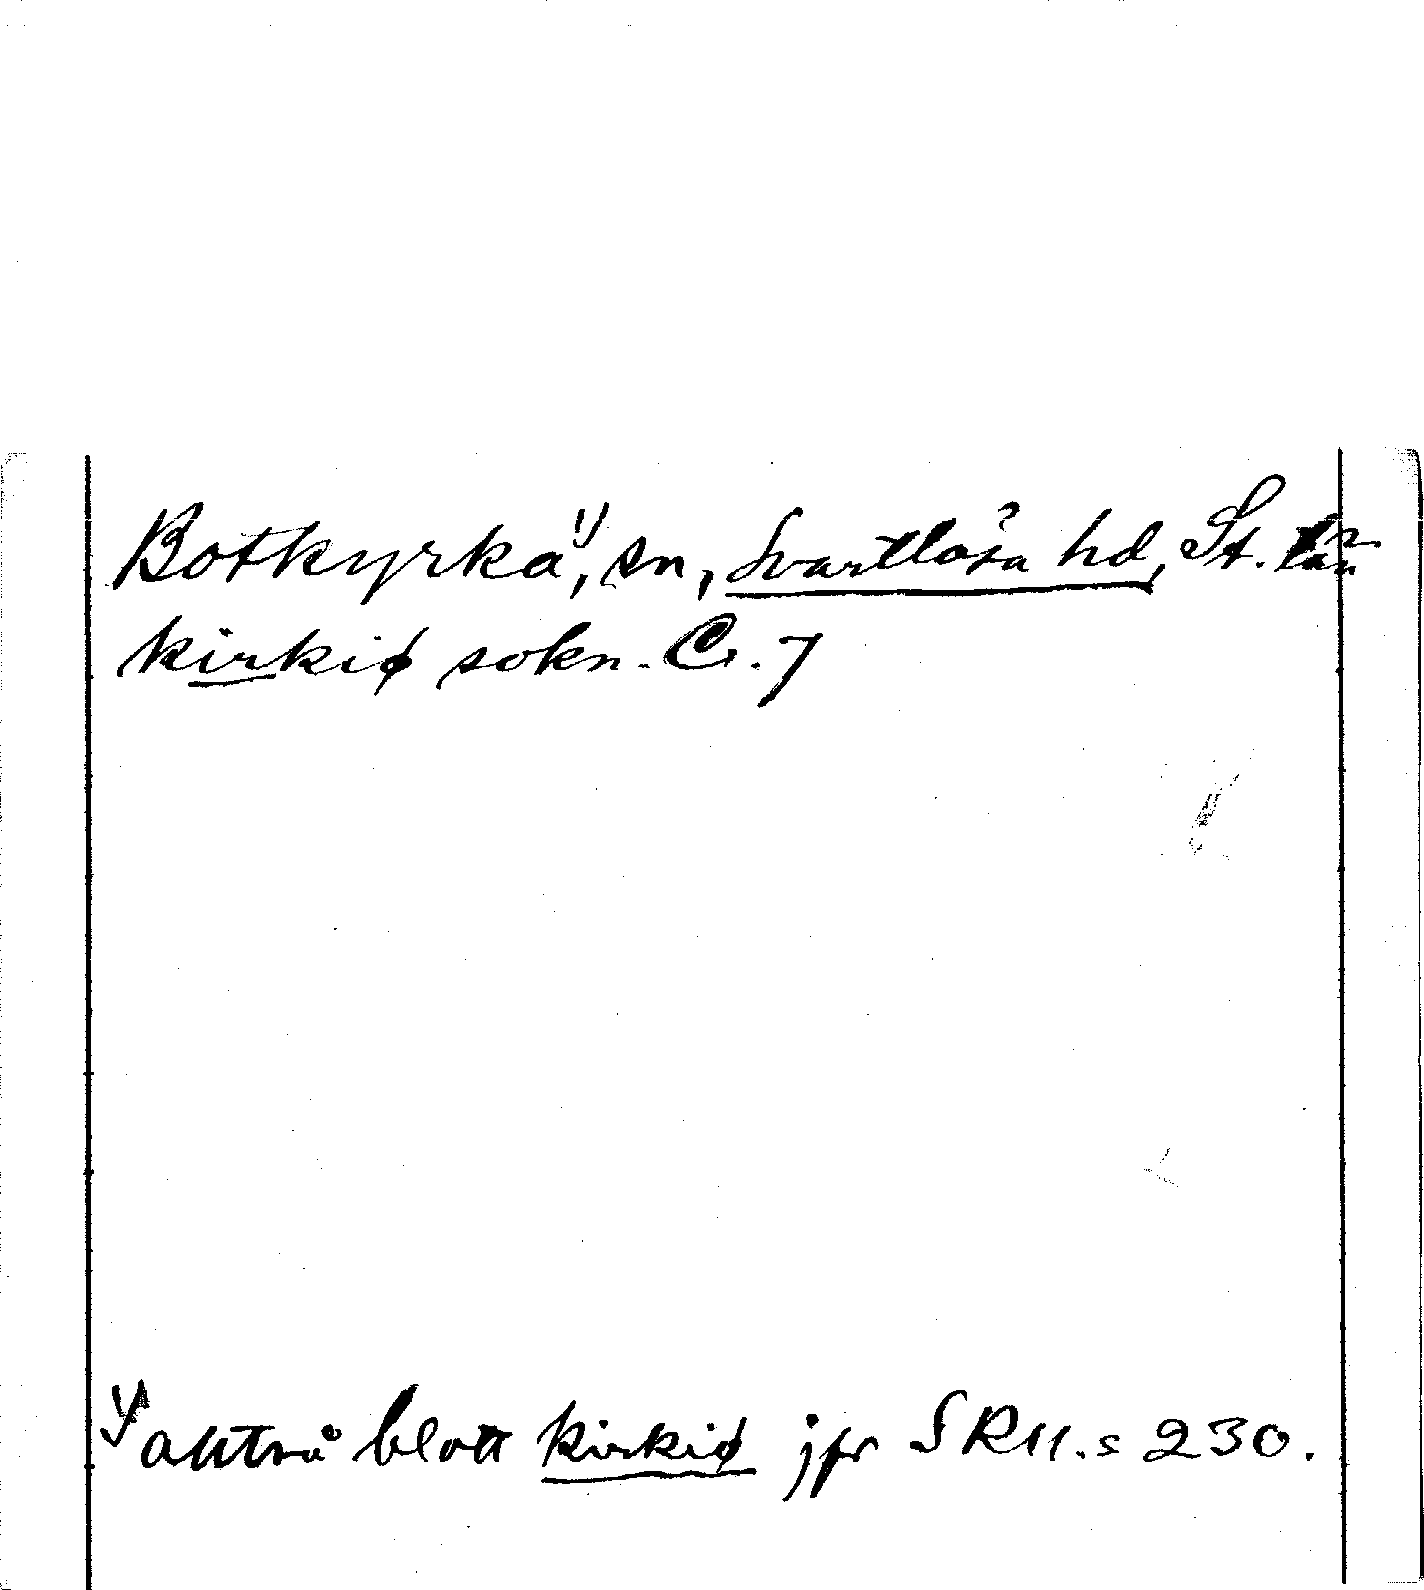 Botkyrka¹⁾, sn, Svartlösa hd, St. län
kirkiø sokn. C. 7
¹⁾ alltså blott kirkiø jfr SRU. s 230.